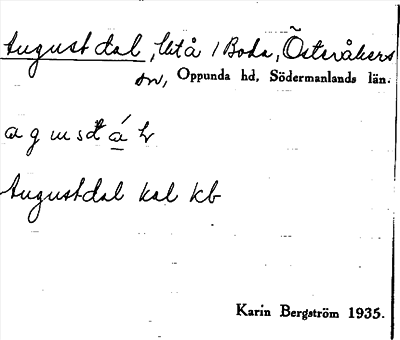 Augustdal, Utå / Boda, Österåkers
sn, Oppunda hd, Södermanlands län.
Augustdal kal kb
Karin Bergström 1935.